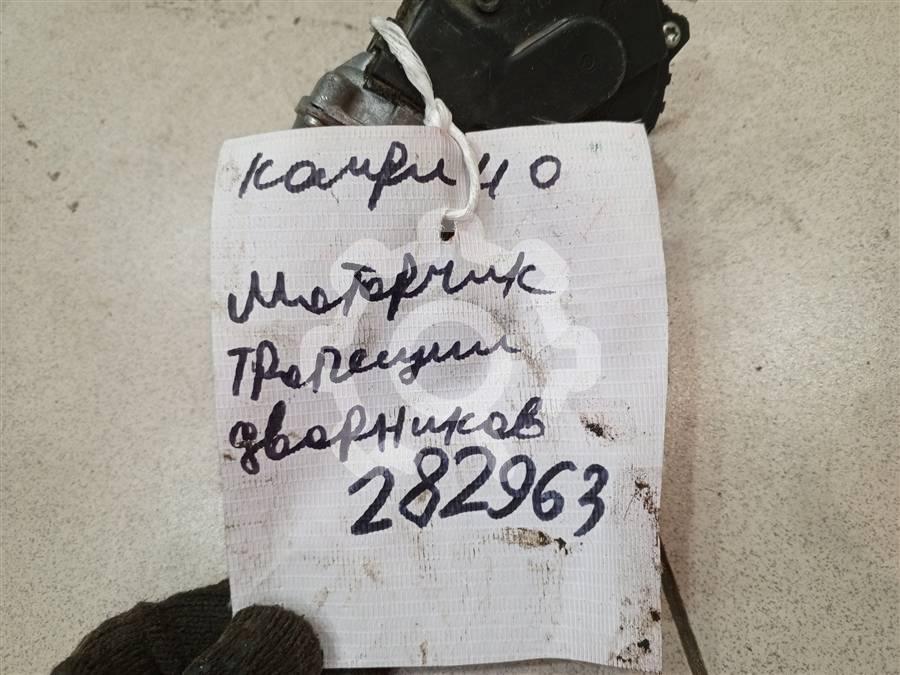 Камри 40
Моторчик
трапеции
дворников
282963